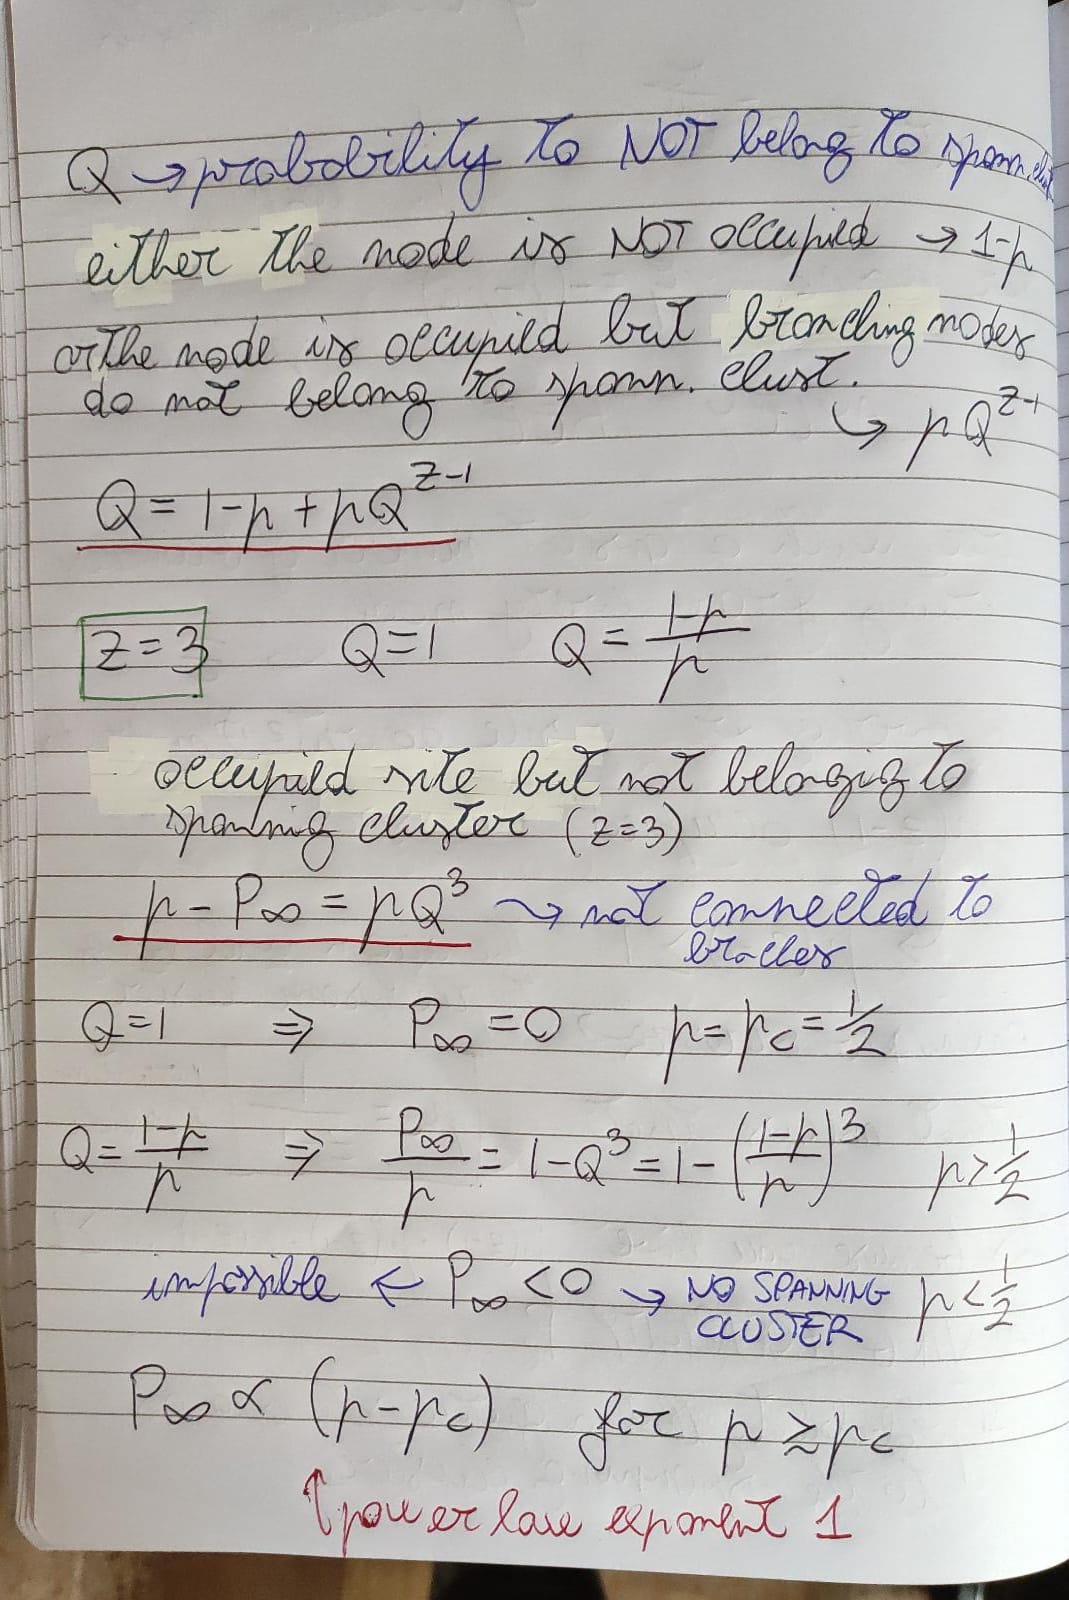 Q → probability to NOT belong to spann. clust
either the node is NOT occupied → 1-p
or the node is occupied but branching nodes
do not belong to spann. clust.
↳ pQ^{z-1}
Q = 1-p + pQ^{z-1}
z=3 Q=1 Q = \frac{1-p}{p}
occupied site but not belonging to
spanning cluster (z=3)
p - P∞ = pQ³ → not connected to
Q=1 ⇒ P∞ = 0 p = pc = 1/2
Q = \frac{1-p}{p} ⇒ \frac{P∞}{p} = 1-Q³ = 1-(\frac{1-p}{p})³ p > 1/2
impossible ← P∞ < 0 → NO SPANNING p < 1/2
CLUSTER
P∞ ∝ (p-pc) for p ≳ pc
↑ power law exponent 1